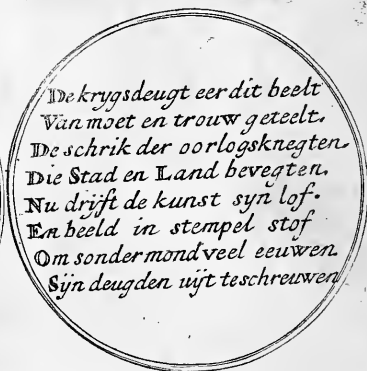 De krygsdeugt eer dit beelt
Van moet en trouw geteelt.
De schrik der oorlogsknegten.
Die Stad en Land bevegten.
Nu drijft de kunst syn lof.
En beeld in stempel stof
Om sonder mond veel eeuwen.
Sÿn deugden uÿt teschreuwen